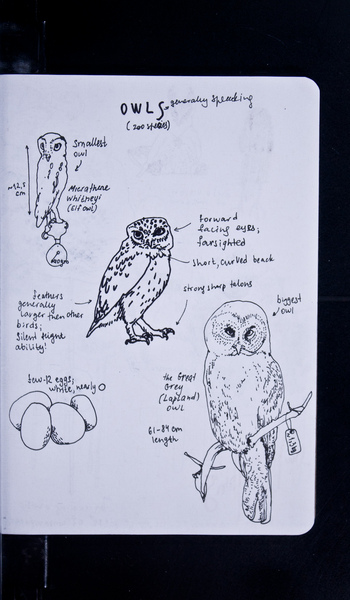 OWLS generally speaking
(200 species)
Smallest
owl
~12,5
cm
Micrathene
whitneyi
(Elf owl)
forward
facing eyes;
farsighted
short, curved beack
strong sharp talons
feathers
generally
larger then other
birds;
Silent flight
ability!
biggest
owl
few-12 eggs;
white, nearly O
the Great
Grey
(Lapland)
owl
61-84 cm
length